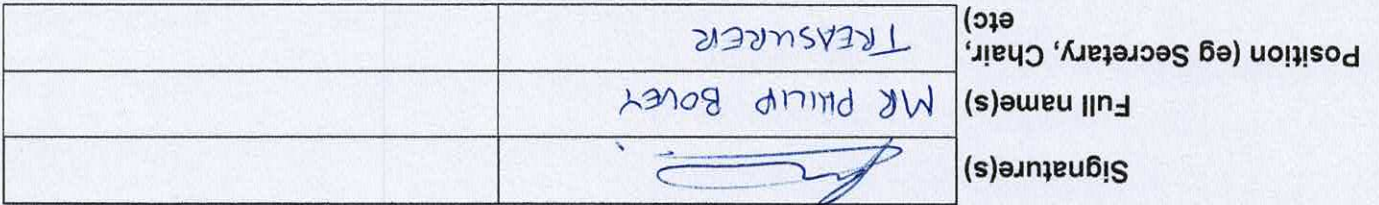 Signature(s)
Full name(s) MR PHILIP BOVEY
Position (eg Secretary, Chair, TREASURER
etc)